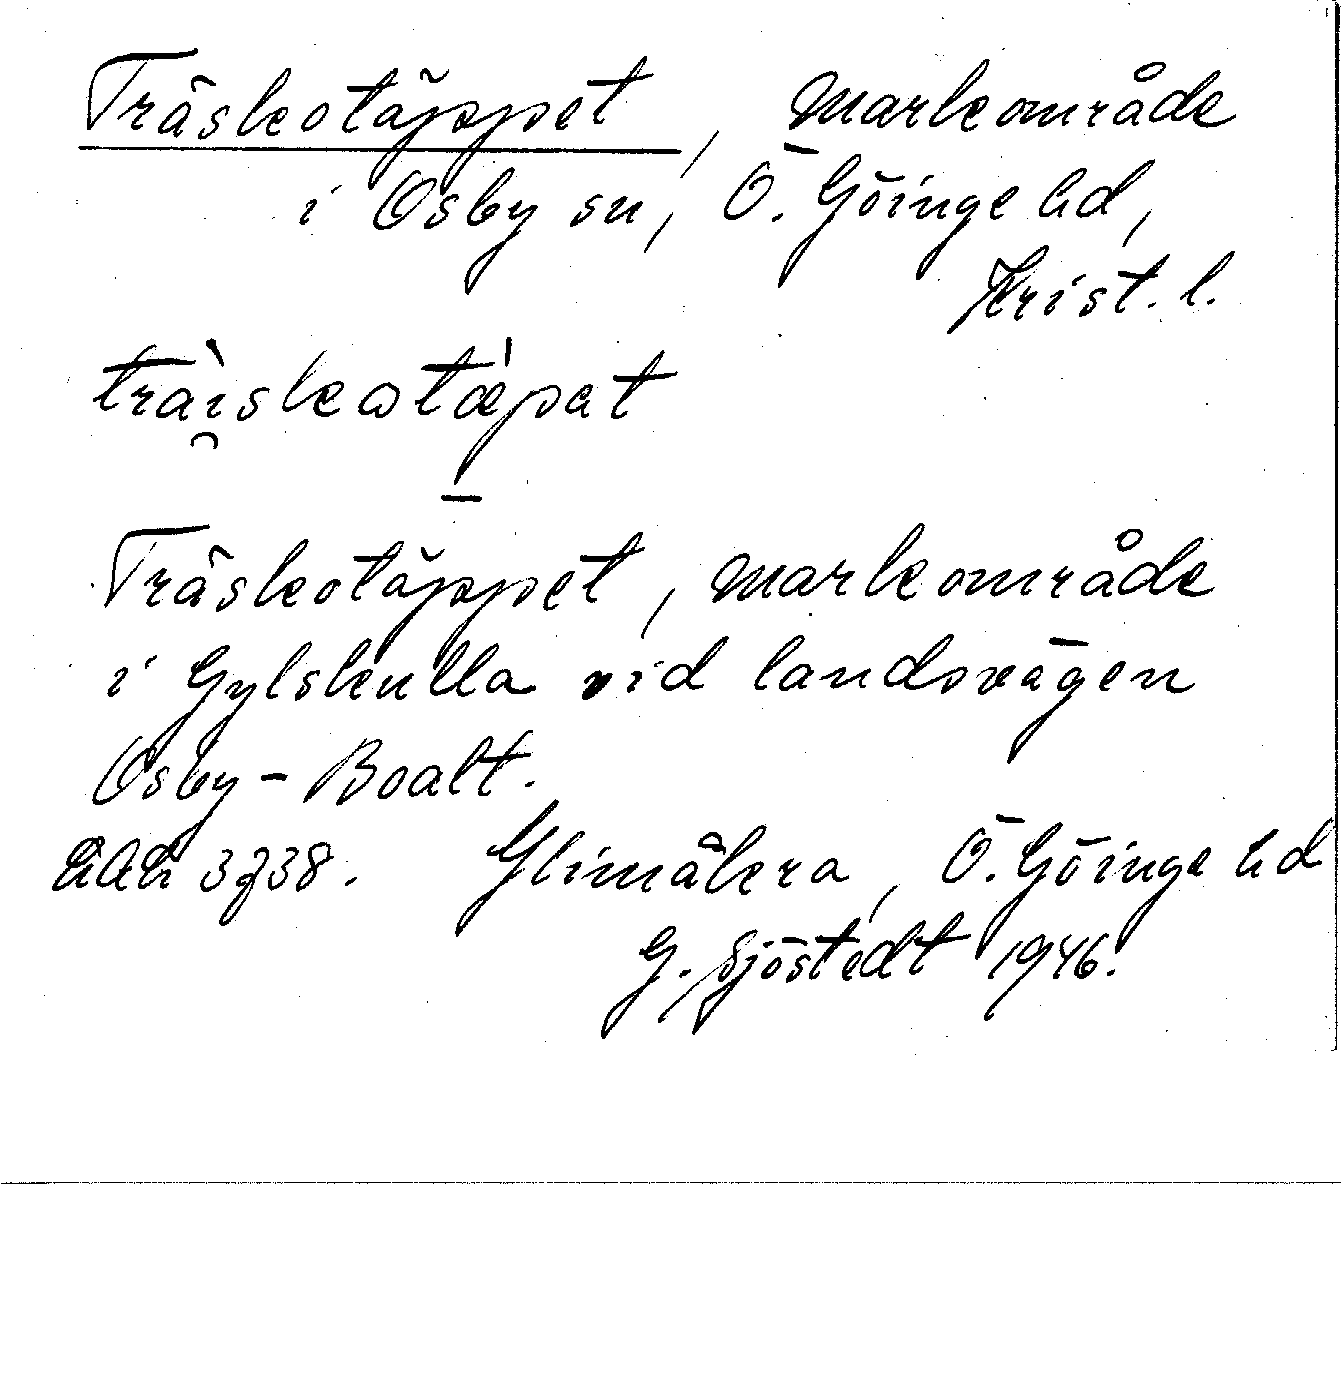 Träskotäppet, markområde
i Osby sn, Ö. Göinge hd,
Krist. l.
trài̯skotæ̍pat
–
Träskotäppet, markområde
i Gylskulla vid landsvägen
Osby – Boalt.
3738. Glimåkra, Ö. Göinge hd
G. Sjöstedt 1946.